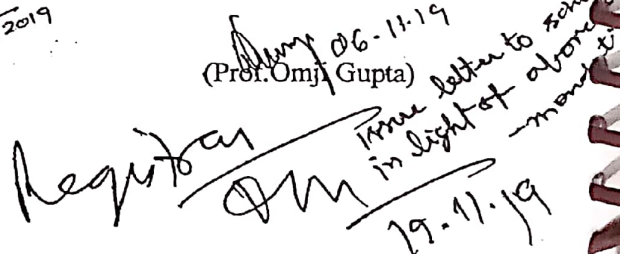 2019
06-11-19
(Prof. Omji Gupta)
issue letter to
in light of above
Registrar
19.11.19